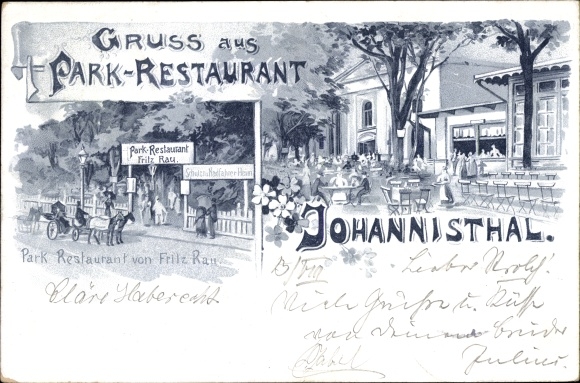 GRUSS aus
PARK-RESTAURANT
Park-Restaurant
Fritz Rau.
JOHANNISTHAL.
Park Restaurant von Fritz Rau.
Cläre Haberecht
Lieber
Viele Grüsse u. Küsse
von deinem Bruder
Julius.